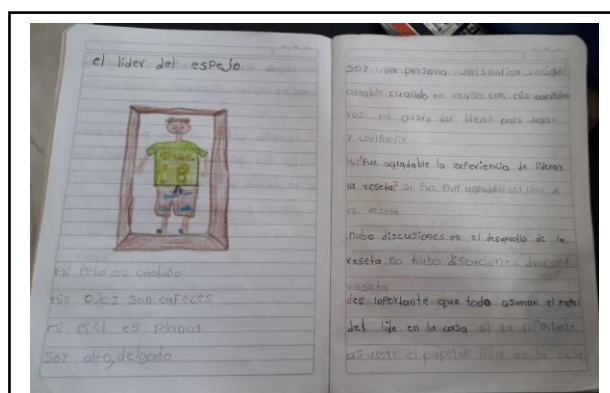 el lider del espejo
mi pelo es castaño
mis ojos son cafeces
mi piel es blanca
Soy alto, delgado
soy una persona carismatica sociable
amable cuando me reuno con mis
me gusta dar ideas para jugar
y compartir
Fue agradable la experiencia de liderar
la reseta? si fue muy agradable
mi reseta
hubo discusiones en el desarrollo de la
reseta no hubo discuciones
reseta
es importante que todo asuman el papel
del lide en la casa si es importante
asumar el papel lider en la casa